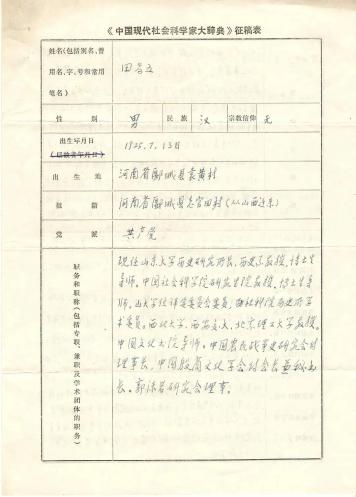 《中国现代社会科学家大辞典》征稿表
姓名(包括别名、曾
用名、字、号和常用
笔名)
田昌五
性 别
男
民 族
汉
宗教信仰
无
出生年月日
(已故者年月日)
1925.7.13日
出 生 地
河南省郾城县袁黄村
籍 贯
河南省郾城县老官田村(从山西迁来)
党 派
共产党
职务和职称(包括专职、兼职及学术团体的职务)
现任山东大学历史研究所长、历史系教授、博士生
导师。中国社会科学院研究生院教授、博士生导
师。山大学位评定委员会委员、社科院历史所学
术委员。西北大学、西安交大、北京理工大学教授。
中国文化书院导师。中国农民战争史研究会付
理事长、中国殷商文化学会付会长兼秘书
长。郭沫若研究会理事。